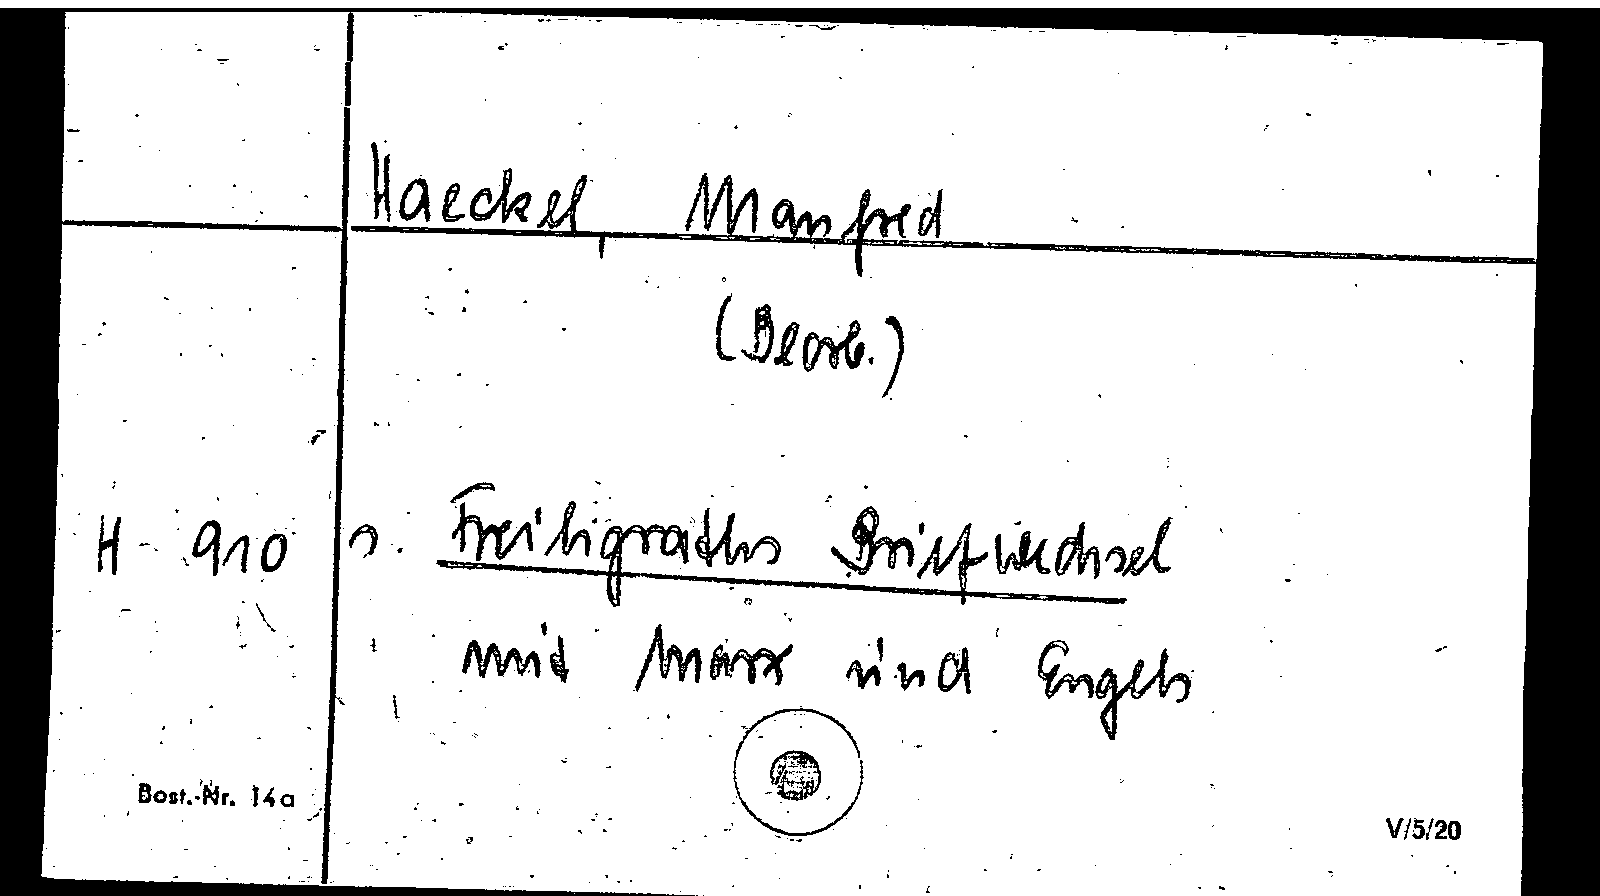 Haeckel, Manfred
(Bearb.)
H 910 s. Freiligraths Briefwechsel
mit Marx und Engels
Best.-Nr. 14a
V/5/20